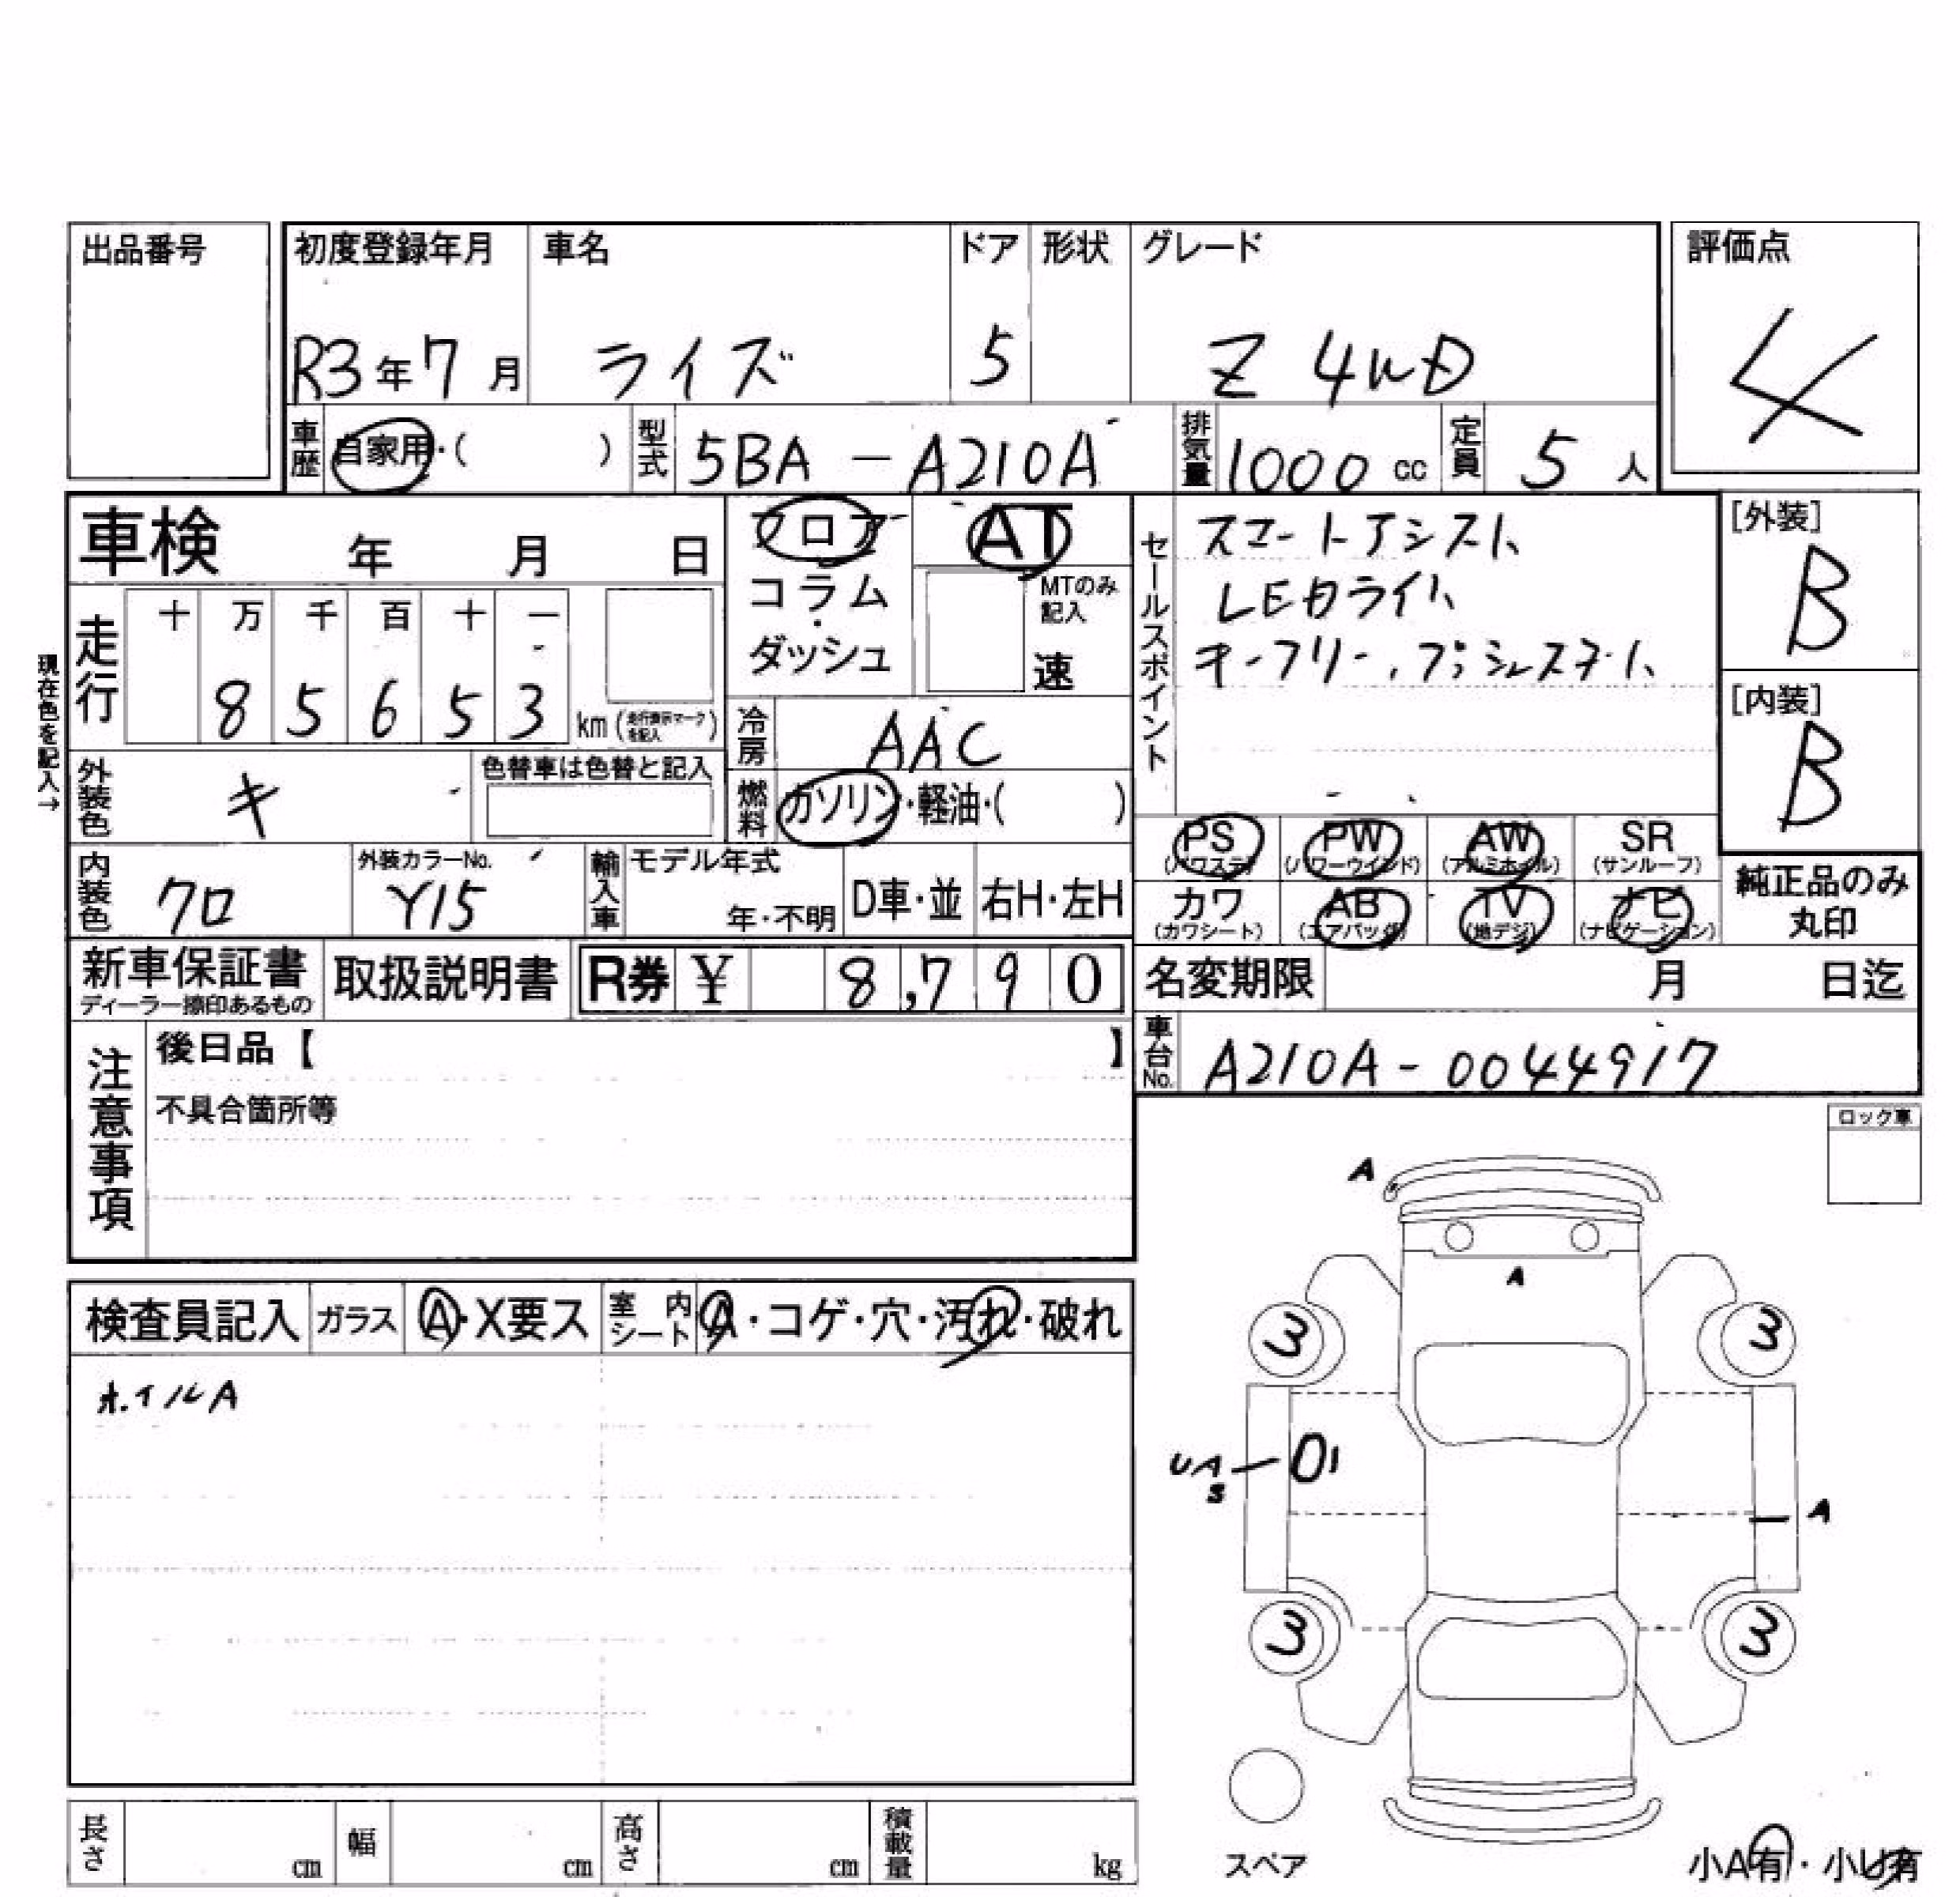 出品番号
初度登録年月 車名 ドア 形状 グレード 評価点
R3年7月 ライズ 5 Z 4WD 4
車歴 自家用・( ) 型式 5BA-A210A 排気量 1000cc 定員 5人
車検 年 月 日
フロア AT
コラム・ダッシュ
MTのみ記入 速
セールスポイント
スマートアシスト
LEDライト
キーフリー、プッシュスタート
[外装] B
[内装] B
現在色を記入→
走行 十 万 千 百 十 一
8 5 6 5 3 km (走行表示マークを記入)
冷房 AAC
外装色 キ 色替車は色替と記入
燃料 ガソリン・軽油・( )
PS (パワステ) PW (パワーウインド) AW (アルミホイル) SR (サンルーフ)
内装色 クロ 外装カラーNo. Y15 輸入車 モデル年式 年・不明 D車・並 右H・左H
カワ (カワシート) AB (エアバッグ) TV (地デジ) ナビ (ナビゲーション)
純正品のみ丸印
新車保証書 ディーラー捺印あるもの 取扱説明書 R券 ¥ 8,790
名変期限 月 日迄
車台No. A210A-0044917
注意事項
後日品【 】
不具合箇所等
ロック車
検査員記入 ガラス A・X要ス 室内シート A・コゲ・穴・汚れ・破れ
ホイルA
A
A
3 3
UA
S
01
A
3 3
スペア
小A有・小U有
長さ cm 幅 cm 高さ cm 積載量 kg